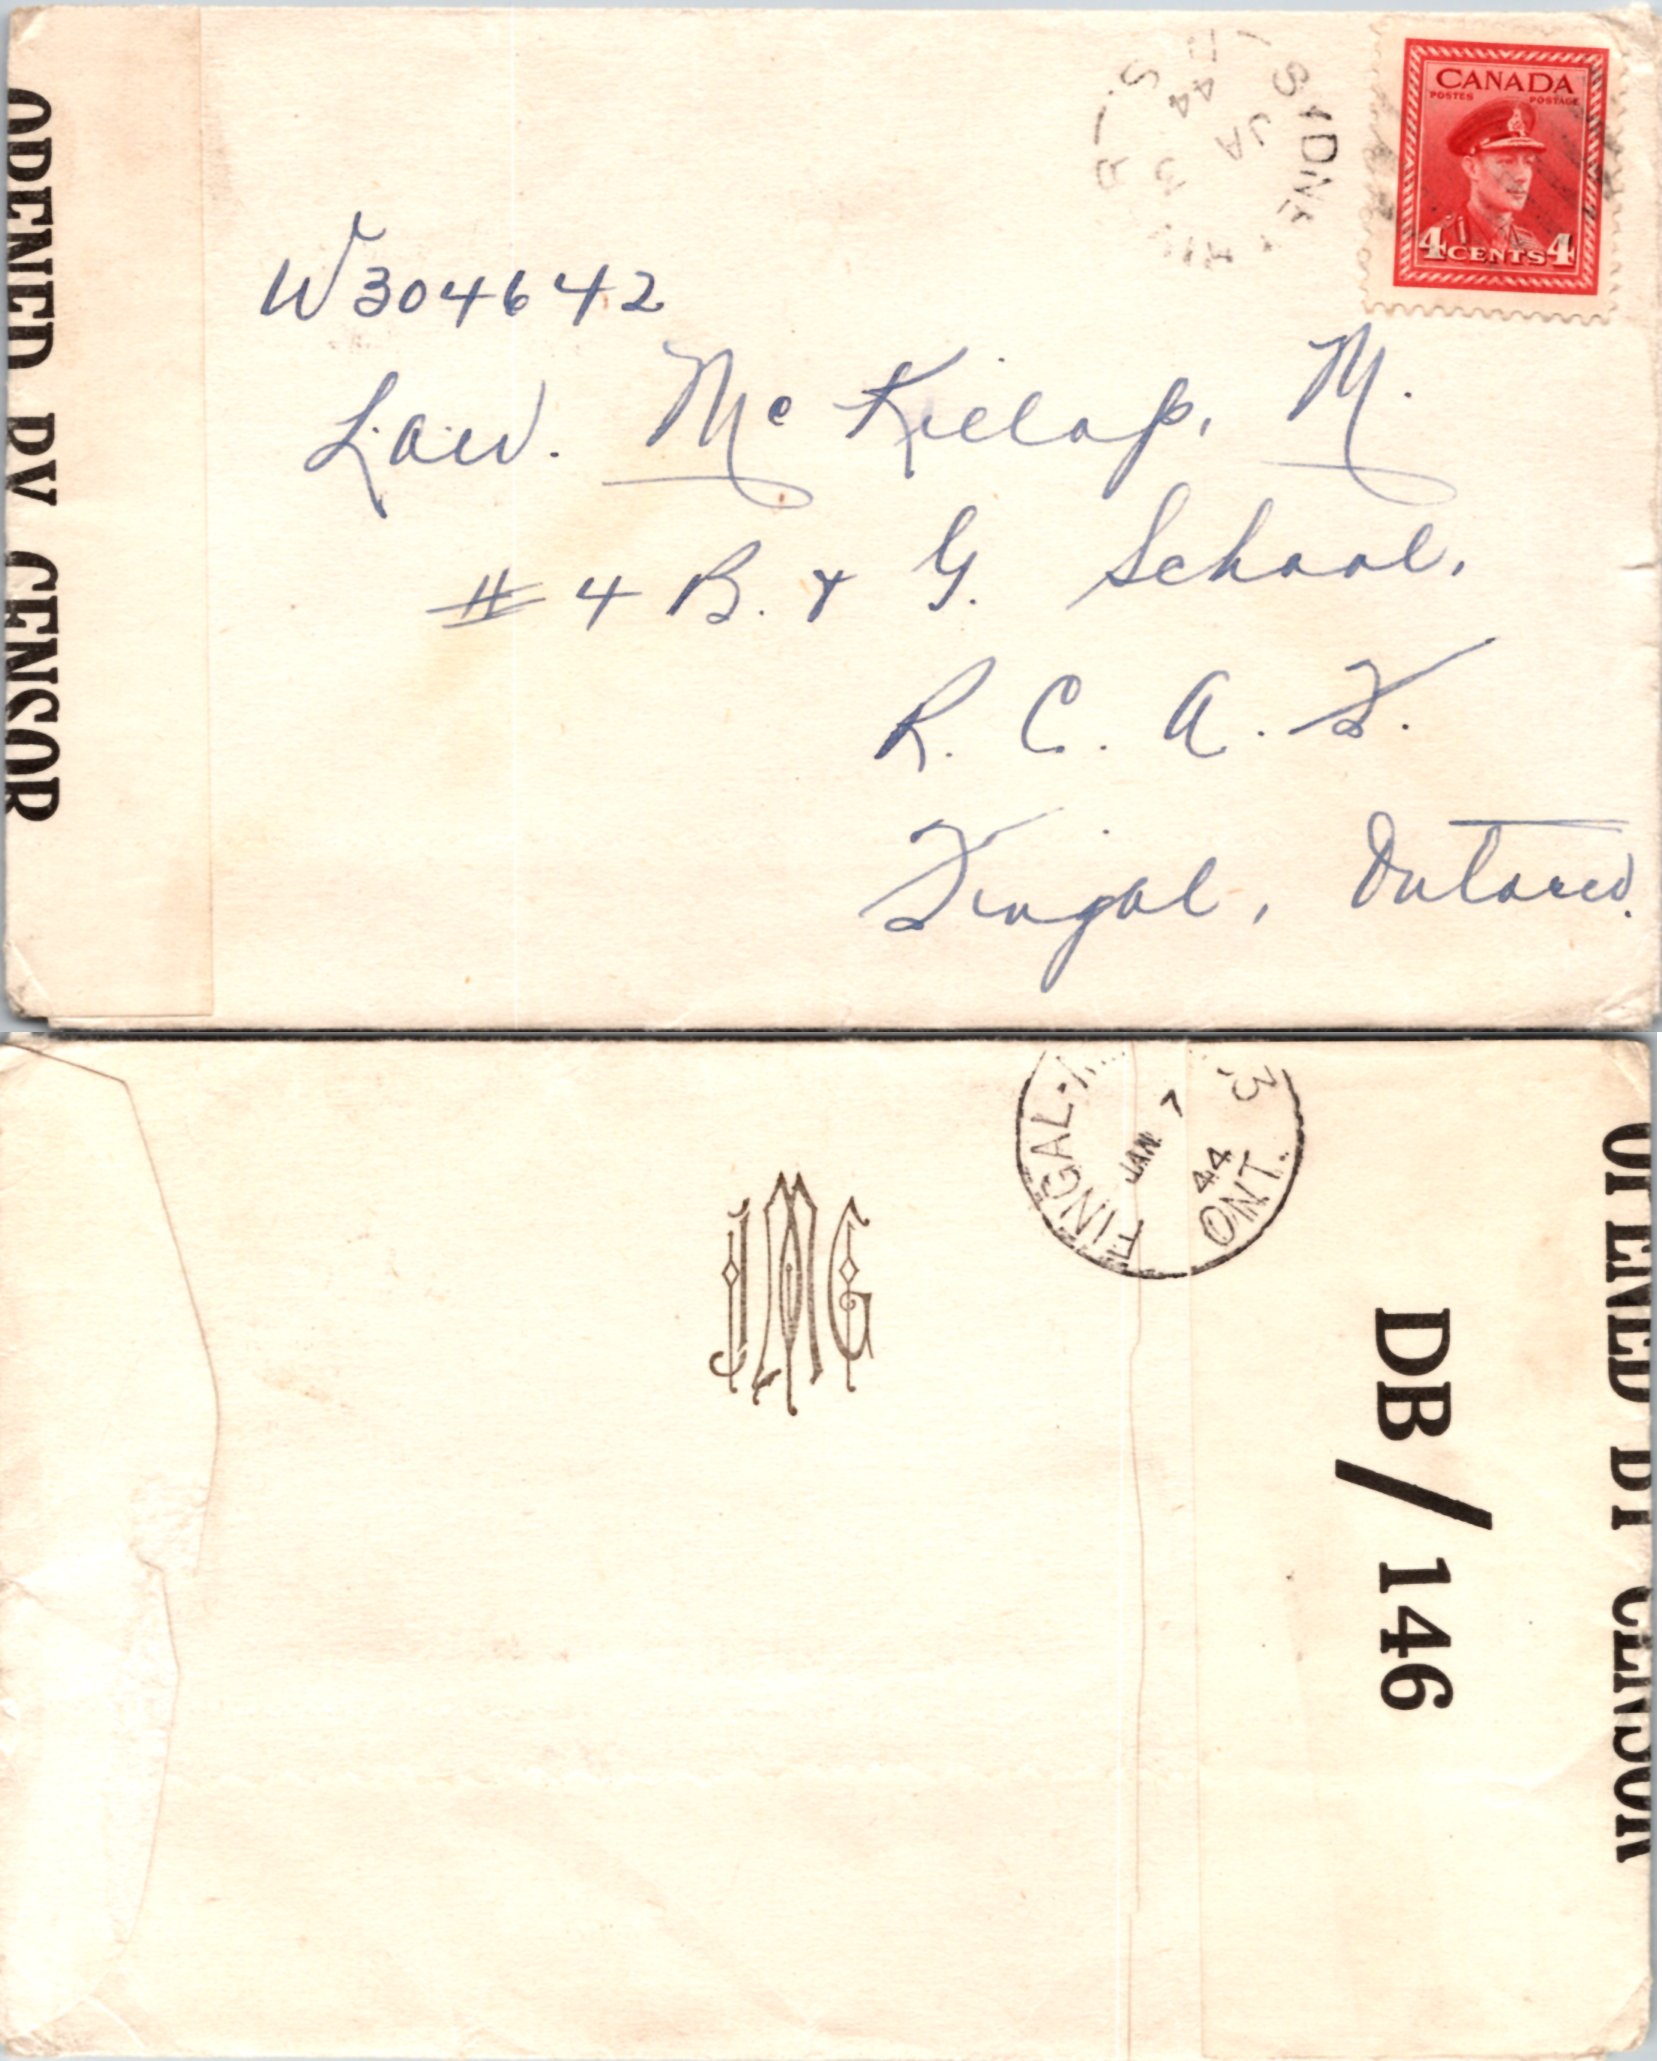 OPENED BY CENSOR
SYDNEY
JA 3
44
CANADA
POSTES POSTAGE
4 CENTS 4
W304642
Law. McKillop, M.
# 4 B. & G. School,
R. C. A. F.
Fingal, Ontario.
FINGAL
JAN 7
44
ONT.
JMG
DB/146
OPENED BY CENSOR